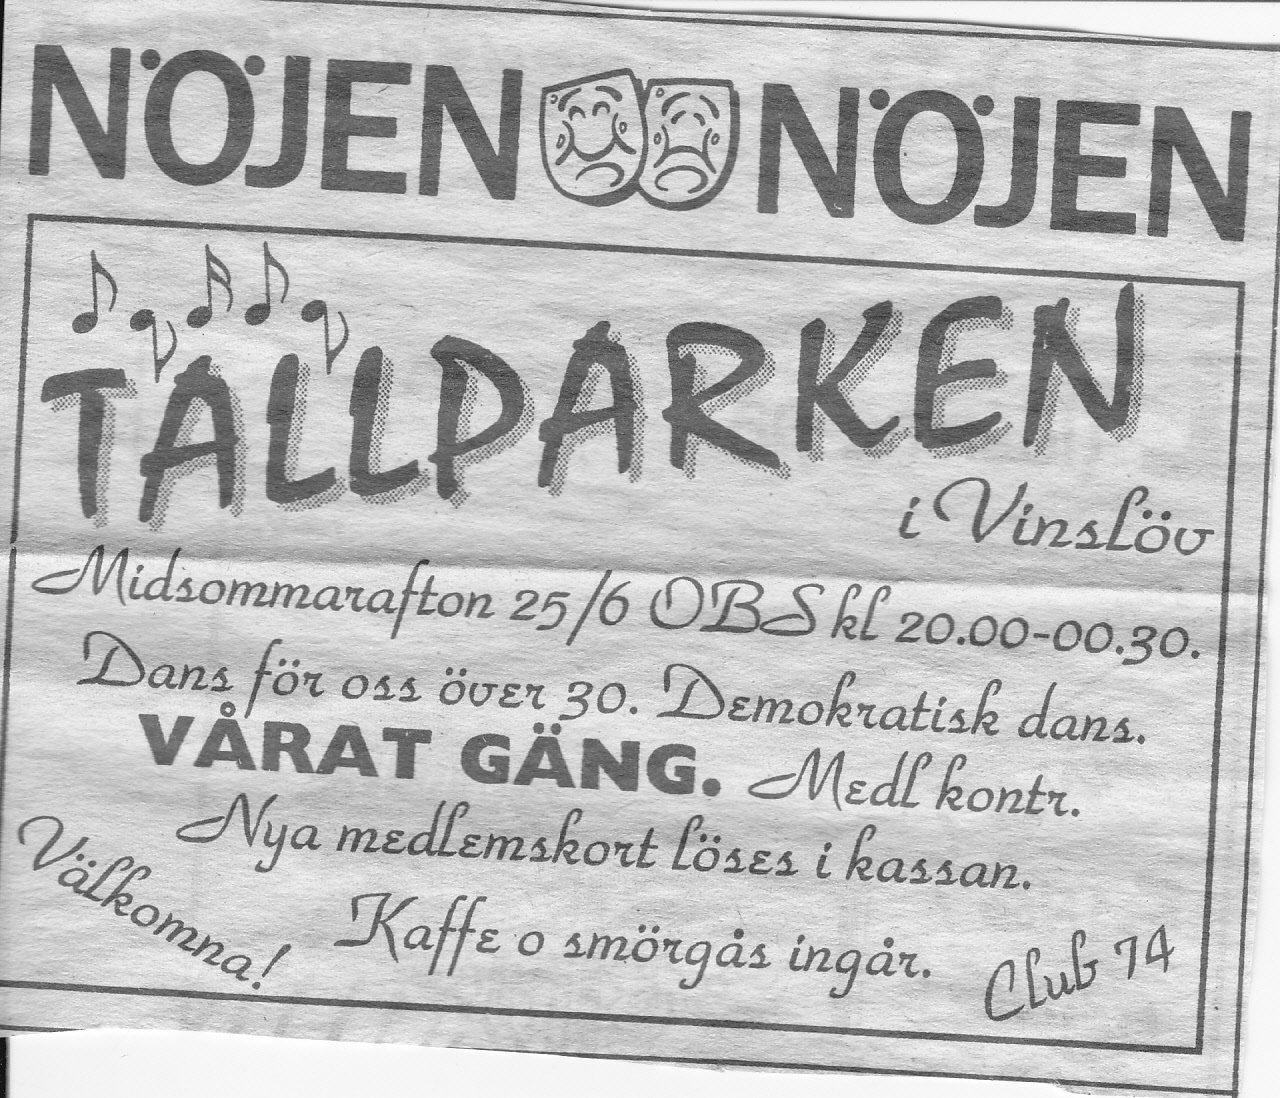 NÖJEN NÖJEN
TALLPARKEN
i Vinslöv
Midsommarafton 25/6 OBS kl 20.00-00.30.
Dans för oss över 30. Demokratisk dans.
VÅRAT GÄNG. Medl kontr.
Nya medlemskort löses i kassan.
Välkomna!
Kaffe o smörgås ingår.
Club 74